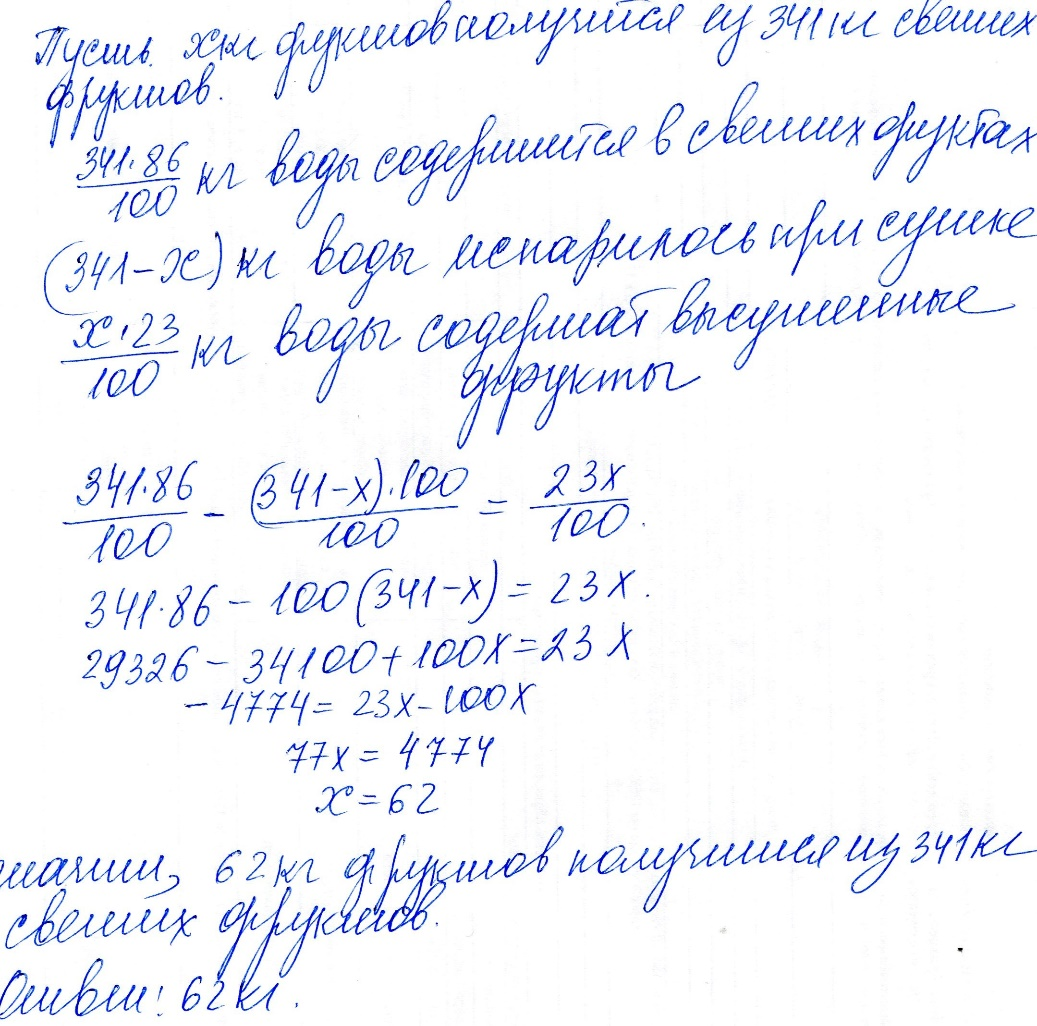 Пусть x кг фруктов получится из 341 кг свежих
фруктов.
341·86/100 кг воды содержится в свежих фруктах
(341-x) кг воды испарилось при сушке
x·23/100 кг воды содержат высушенные
фрукты
341·86/100 - (341-x)·100/100 = 23x/100.
341·86 - 100(341-x) = 23x.
29326 - 34100 + 100x = 23x
-4774 = 23x - 100x
77x = 4774
x = 62
значит, 62 кг фруктов получится из 341 кг
свежих фруктов.
Ответ: 62 кг.